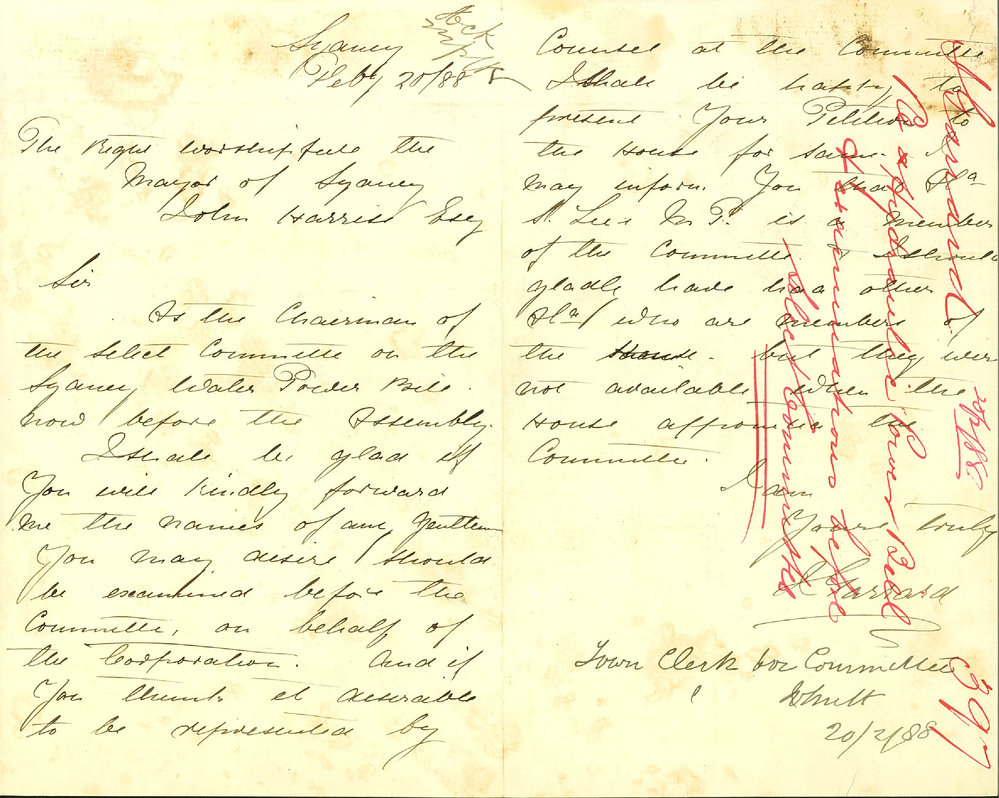 Sydney
Feby 20/88
The Right worshipfull the
Mayor of Sydney
John Harriss Esq
Sir
As the Chairman of
the Select Committe on the
Sydney Water Power Bill.
now before the Assembly.
I shall be glad if
You will kindly forward
me the names of any Gentlem
You may desire should
be examined before the
Committe, on behalf of
the Corporation. And if
You think it desirable
to be represented by
Counsel at the Committe
I shall be happy to
present Your Petition to
the House for same. I
may inform You that
S. Lees M.P. is a member
of the Committe. I should
gladly have had other
who are members of
the House. but they were
not available when the
House appointed the
Committe.
I am
Yours truly
J Garrard
Town Clerk for Committee
20/2/88
J Garrard.
Re Hydraulic Power Bill
& examinations before
Select Committee
397